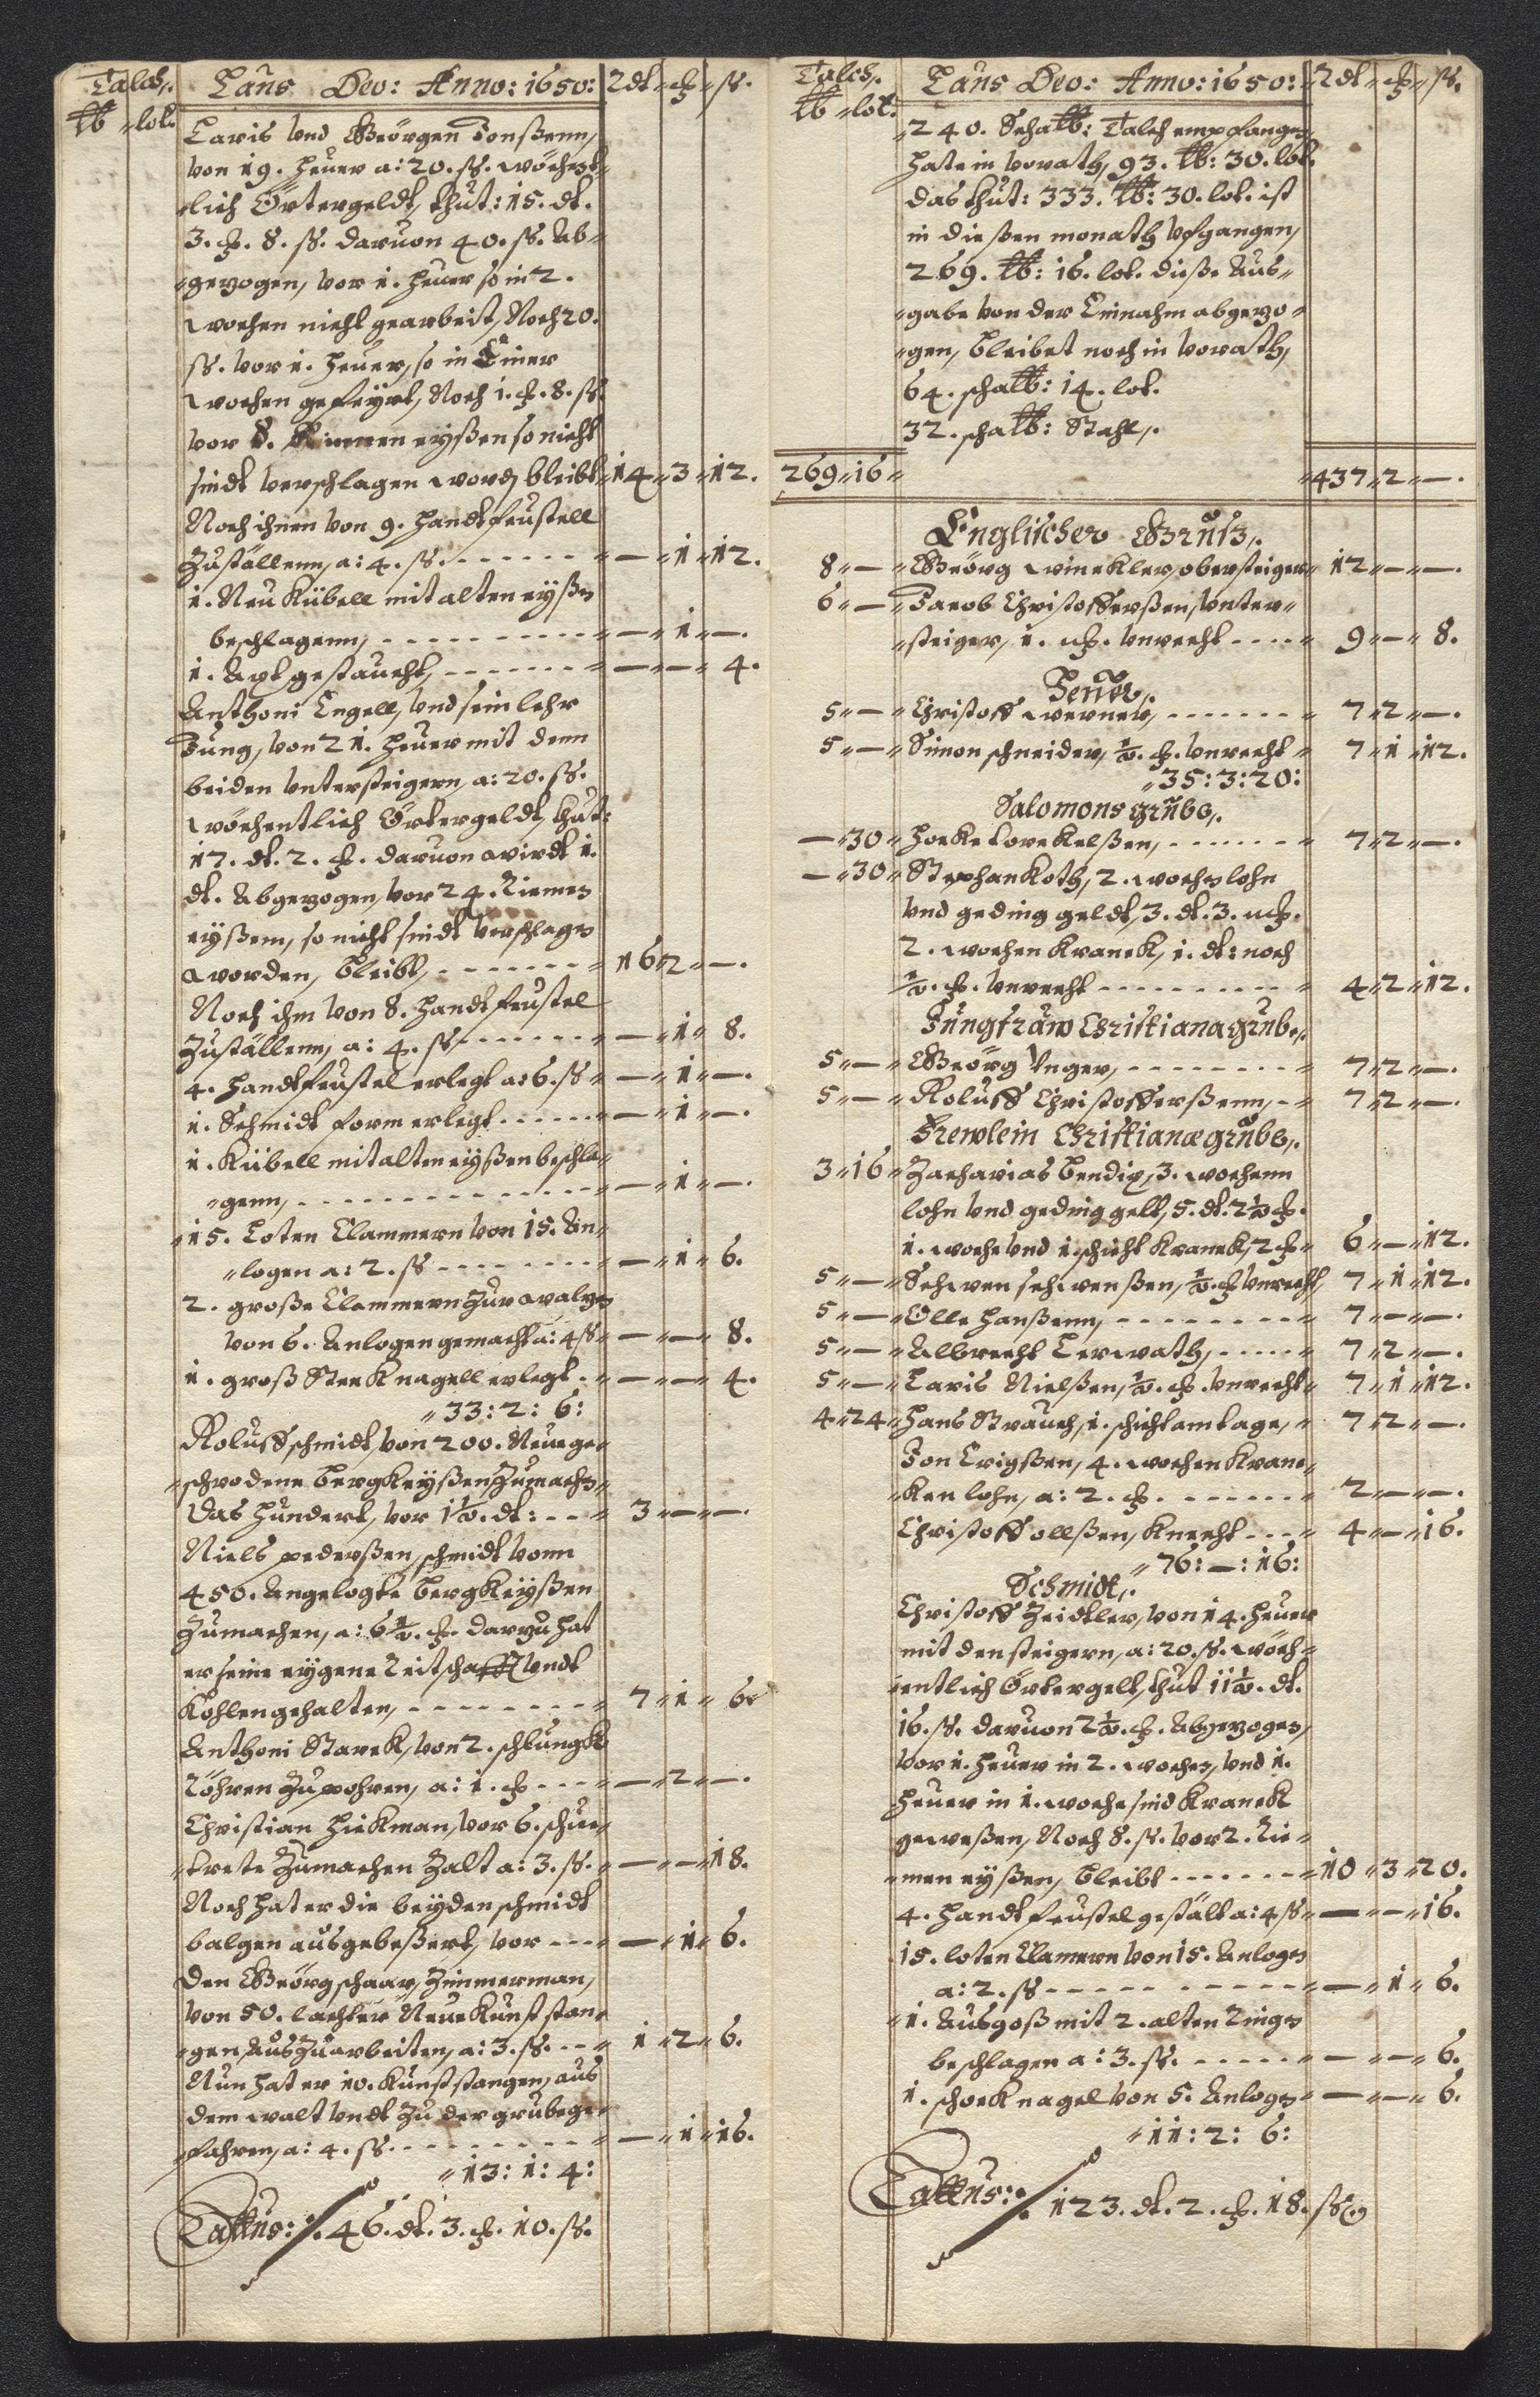 Talch,. Laus Deo: Anno: 1650: Rdt " ₰ " ß.
lb " lot.
Laris Vnd Geörgen Tonßenn,
von 19. heuer a: 20. ß. wöchent-
lich Örtergeldt, thut: 15. dt.
3. ₰. 8. ß. daruon 40. ß. Ab-
gezogen, vor 1. heuer so in 2.
wochen nicht gearbeit, Noch 20.
ß. vor 1. heuer, so in Einer
wochen gefeyrt, Noch 1. ₰. 8. ß.
vor 8. Riemen eyßen so nicht
sindt verschlagen word, bleibt " 14 " 3 " 12.
Noch ihnen von 9. handtfeustell
Zuställenn, a: 4. ß. - - - " — " 1 " 12.
1. Neu Kübell mit alten eyßen
beschlagenn, - - - " — " 1 " —.
1. Axt gestaucht, - - - " — " — " 4.
Anthoni Engell, Vnd sein lehr
Jung, von 21. heuer mit denn
beiden Vntersteigern, a: 20. ß.
wöchentlich Örtergeldt, thut:
17. dt. 2. ₰. daruon wirdt 1.
dt. Abgezogen, vor 24. Riemen
eyßem, so nicht sindt verschlagen
worden, bleibt, - - - " 16 " 2 " —.
Noch ihm von 8. handtfeustel
Zuställenn, a: 4. ß - - - " — " 1 " 8.
4. handtfeustel erlegt a: 6. ß " — " 1 " —.
1. Schmidt form erlegt - - - " — " 1 " —.
1. Kübell mit alten eyßen beschla-
"genn, - - - " — " 1 " —.
"15. Loten Clammern von 15. An-
"logen a: 2. ß - - - " — " 1 " 6.
2. große Clammern Zur walzen
von 6. Anlogen gemacht a: 4 ß " — " — " 8.
1. groß Steck nagell erlegt - " — " — " 4.
" 33: 2: 6:
Roluff schmidt, von 200. Neue ge-
"schrodene bergkeyßen Zumachen
das hundert, vor 1½. dt: - - " 3 " — " —.
Niels pederßen, schmidt vonn
450. Angelogte bergkeyßen
Zumachen, a: 6½. ₰. darzu hat
er seine eygene Reitschafft Vndt
Kohlen gehalten, - - - " 7 " 1 " 6
Anthoni Starck, von 2. schlungk
Röhren Zu pohren, a: 1. ₰ - - - " — " 2 " —.
Christian Hickman, vor 6. schue-
"brete Zumachen Zalt a: 3. ß. " — " — " 18.
Noch hat er die beyden schmidt
balgen ausgebeßert, vor - - - " — " 1 " 6.
Den Geörg schaar, Zimmerman,
von 50. lachter Neue Kunst stan-
"gen, Aus Zuarbeiten, a: 3. ß. - - " 1 " 2 " 6.
Nun hat er 10. Kunst stangen, aus
dem walt Vndt Zu der grube ge-
"fahren, a: 4. ß. - - - " — " 1 " 16.
" 13: 1: 4:
Lattus: ∕. 46. dt. 3. ₰. 10. ß.
Talch,. Laus Deo: Anno: 1650: " Rdt " ₰ " ß.
lb " lot.
"240. Scha lb: Talch empfangen
hate in vorath, 93. lb: 30. lot.
das thut: 333. lb: 30. lot. ist
in dießen monath vfgangen,
269. lb: 16. lot. dieße Aus-
"gabe von der Einnahm abgezo-
"gen, bleibet noch in vorath,
64. scha lb: 14. lot.
32. scha lb: Stahl,.
269 " 16 " " 437 " 2 " —.
Englischer Gruß,.
8 " — " Geörg winckler, obersteiger " 12 " — " —.
6 " — " Jacob Christofferßen, Vnter-
"steiger, 1. ₰. Vnrecht - - - " 9 " — " 8.
Heuer,.
5 " — " Christoff werner, - - - " 7 " 2 " —.
5 " — " Simon schneider, ½. ₰. Vnrecht " 7 " 1 " 12.
" 35: 3: 20:
Salomons grube,.
— " 30 " Hocke Torckelßen, - - - " 7 " 2 " —.
— " 30 " Stephan Koth, 2. wochen lohn
Vnd geding geldt, 3. dt. 3. ₰.
2. wochen Kranck, 1. dt: noch
½. ₰. Vnrecht - - - " 4 " 2 " 12.
Jungfraw Christiana grube,.
5 " — " Geörg Vnger, - - - " 7 " 2 " —.
5 " — " Roluff Christofferßenn, - " 7 " 2 " —.
Frewlein Christianæ grube,.
3 " 16 " Zacharias bendix, 3. wochenn
lohn Vnd geding gelt, 5. dt. 2½ ₰.
1. woche Vnd 1. schicht Kranck, 2 ₰ " 6 " — " 12.
5 " — " Schwen schwenßen, ½. ₰ Vnrecht, 7 " 1 " 12.
5 " — " Olle Hanßenn, - - - " 7 " — " —.
5 " — " Albrecht Lerwath, - - - " 7 " 2 " —.
5 " — " Laris Nielßen, ½. ₰. Vnrecht " 7 " 1 " 12.
4 " 24 " Hans Strauch, 1. schicht am tage, " 7 " 2 " —.
Jon Erigßen, 4. wochen Kran-
"ken lohn, a: 2. ₰. - - - " 2 " — " —.
Christoff ollßen, Knecht - - - " 4 " — " 16.
" 76: —: 16:
Schmidt,.
Christoff Zeidler, von 14. heuer
mit den steigern, a: 20. ß. wöch-
"entlich Örtergelt, thut 11½. dt.
16. ß. daruon 2½. ₰. Abgezogen,
vor 1. heuer in 2. wochen, Vnd 1.
heuer in 1. woche sind Kranck
geweßen, Noch 8. ß. vor 2. Rie-
"men eyßen, bleibt - - - " 10 " 3 " 20.
4. handt feustel gestält a: 4 ß " — " — " 16.
15. loten Clamern von 15. Anlogen
a: 2. ß - - - " — " 1 " 6.
"1. Ausgoß mit 2. alten Ringen
beschlagen a: 3. ß. - - - " — " — " 6.
1. schock nagel von 5. Anlogen " — " — " 6.
" 11: 2: 6:
Lattus: ∕. 123. dt. 2. ₰. 18. ß